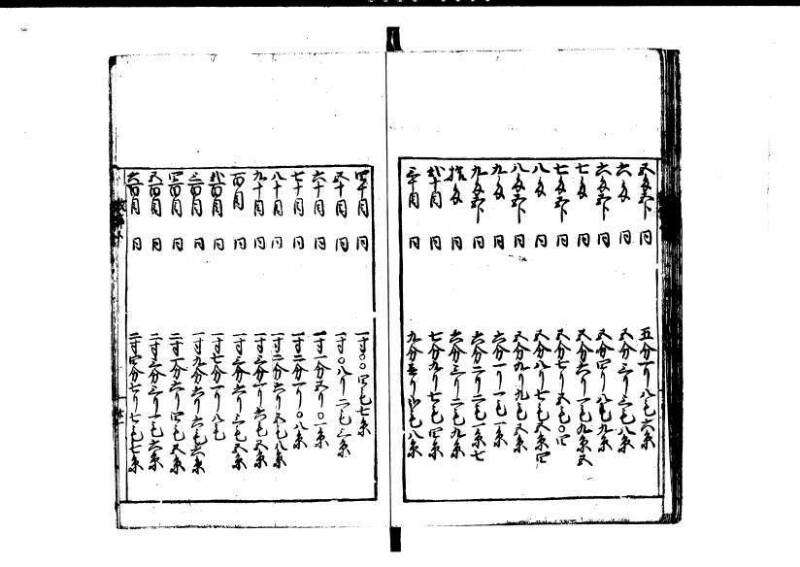 五匁五卜 同 五分一リ八毛六糸
六匁 同 五分三リ三毛八糸
六匁五卜 同 五分四リ八毛九糸
七匁 同 五分六リ一毛九糸五
七匁五卜 同 五分七リ五毛〇四
八匁 同 五分八リ七毛五糸四
八匁五卜 同 五分九リ九毛五糸
九匁 同 六分一リ一毛糸
九匁五卜 同 六分二リ二毛一糸七
拾匁 同 六分三リ二毛九糸
弐十目 同 七分九リ七毛四糸
三十目 同 九分壱リ弐毛八糸
四十目 同 一寸〇〇四毛七糸
五十目 同 一寸〇八リ二毛三糸
六十目 同 一寸一分五リ〇一糸
七十目 同 一寸二分一リ〇八糸
八十目 同 一寸二分六リ五毛八糸
九十目 同 一寸三分一リ六毛五糸
百目 同 一寸三分六リ三毛五糸
弐百目 同 一寸七分一リ八毛
三百目 同 一寸九分六リ六毛六糸
四百目 同 二寸一分六リ四毛五糸
五百目 同 二寸三分三リ一毛六糸
六百目 同 二寸四分七リ七毛七糸